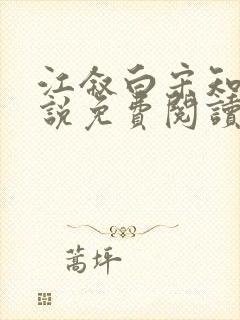 江叙白宋知
說免費閱讀
蒿坪